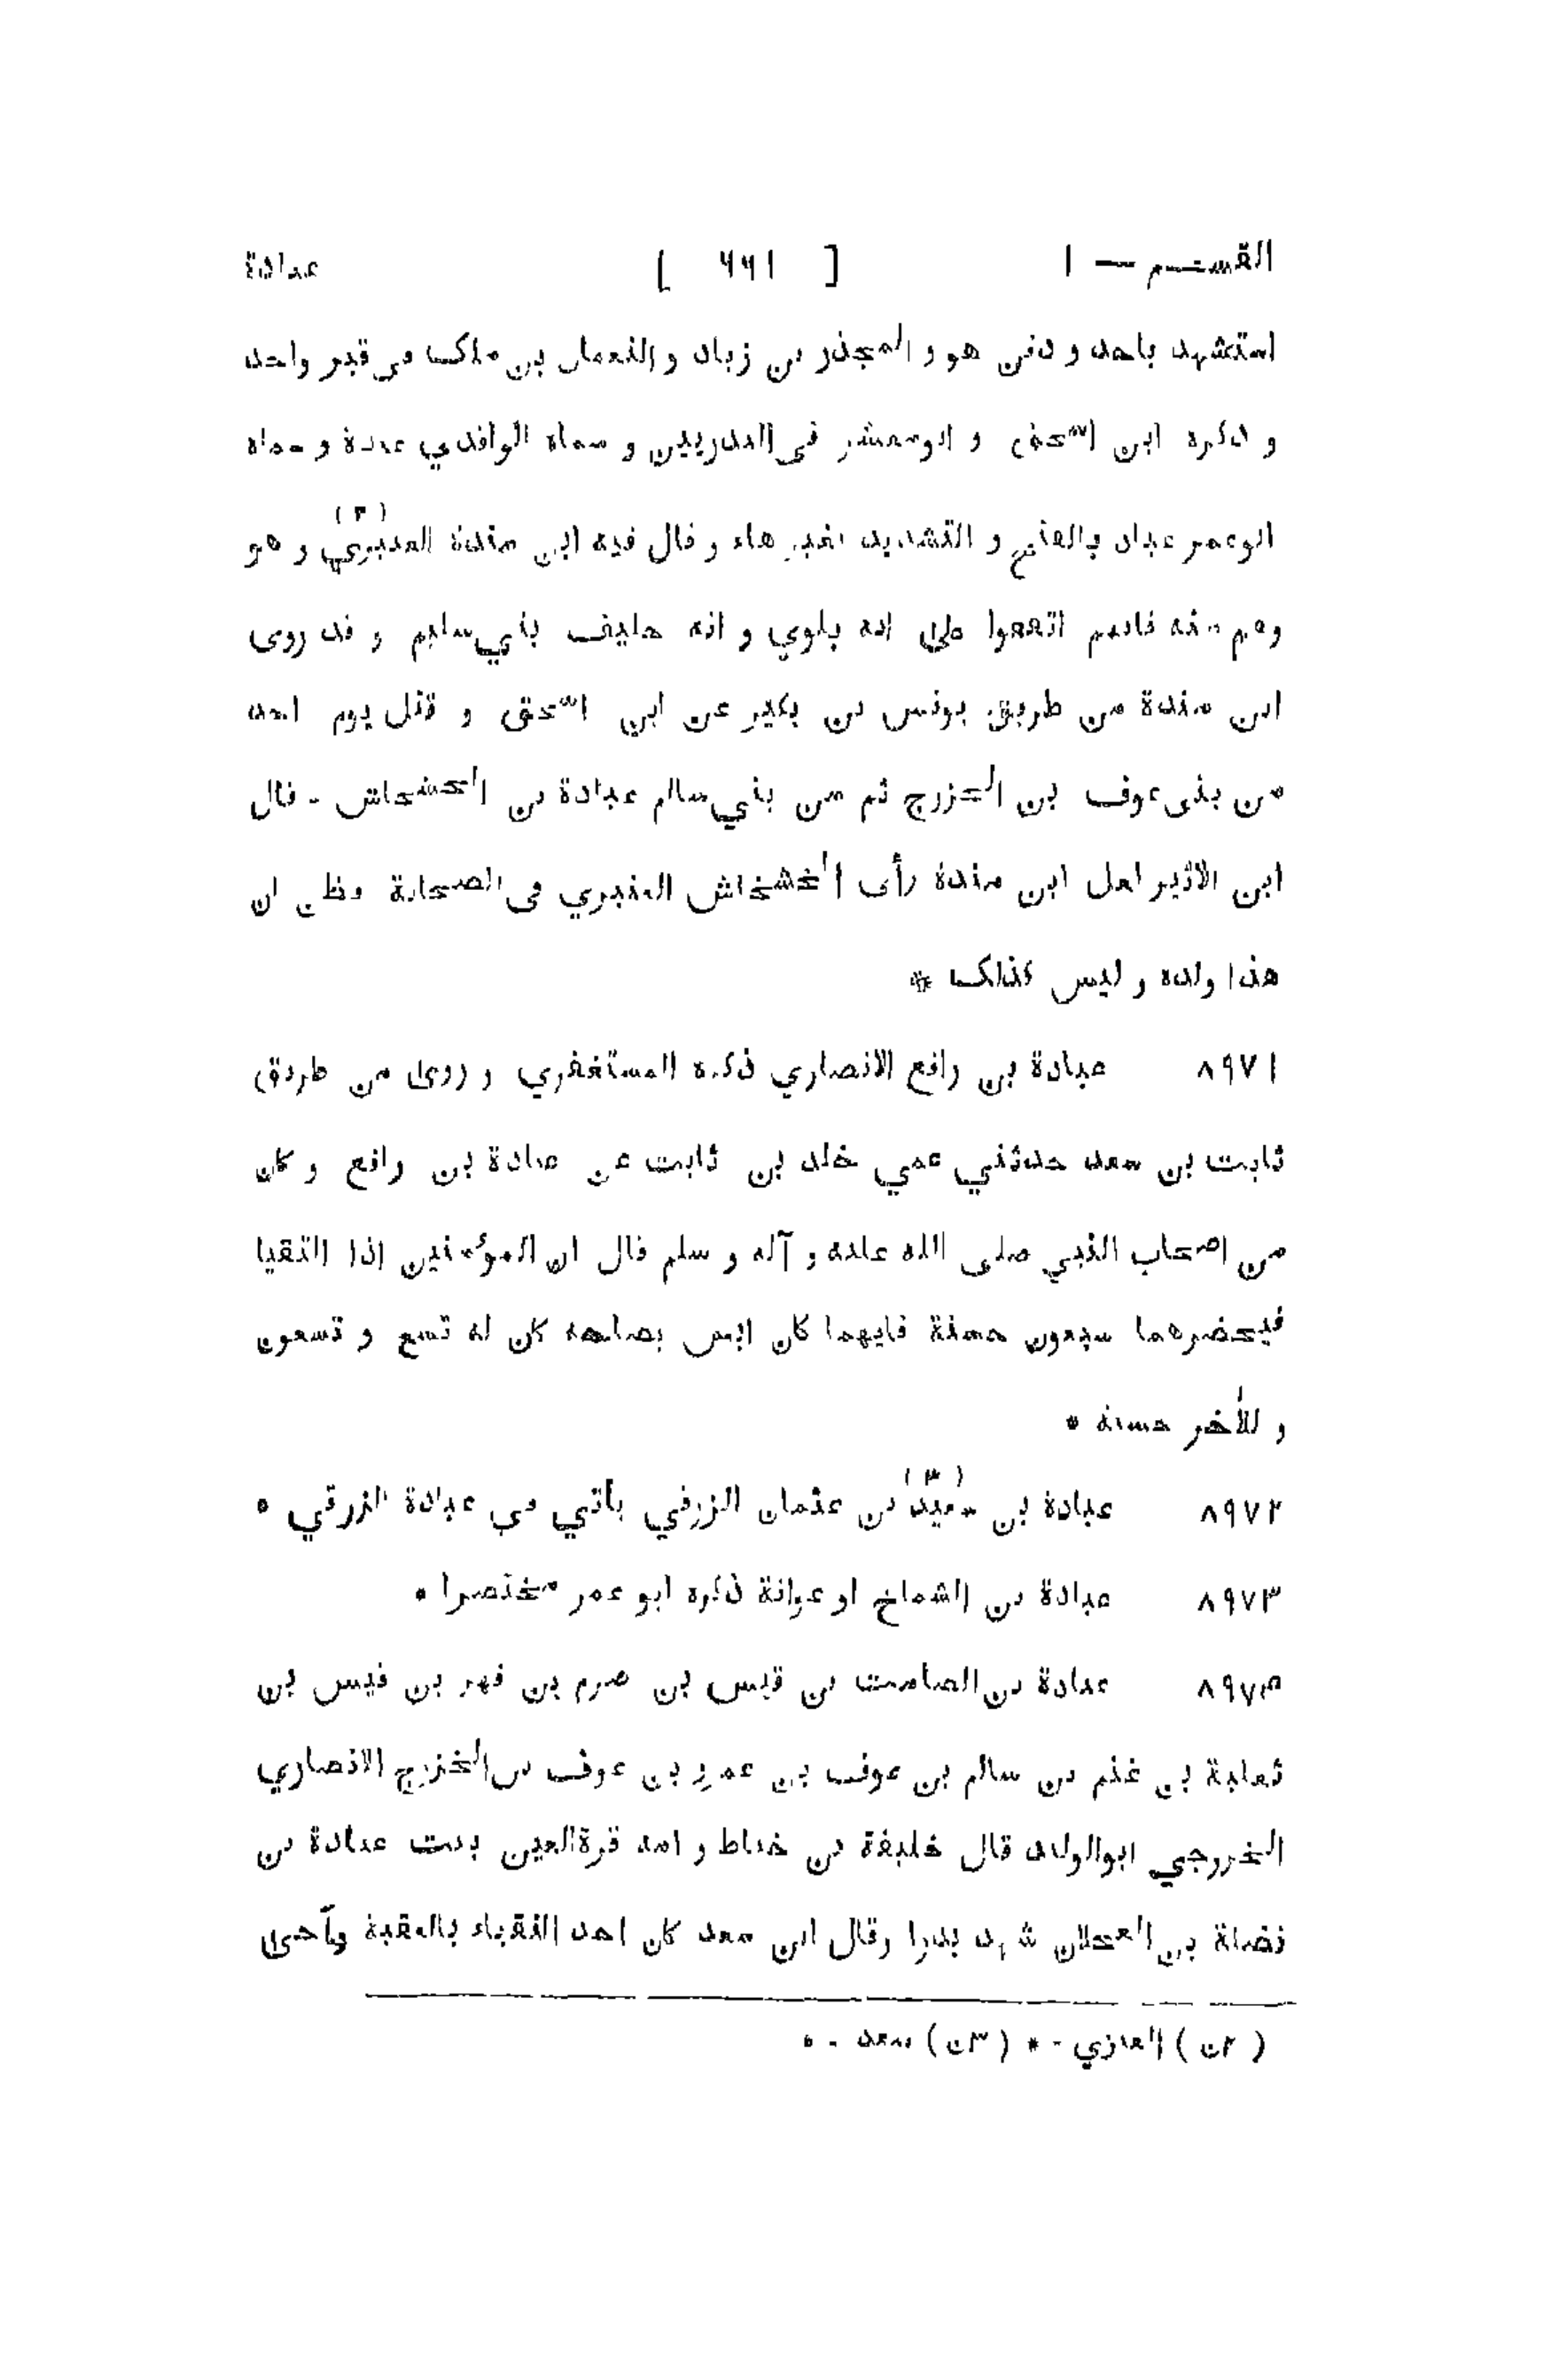 القسم — ١ [ ٦٦١ ] عبادة
استشهد باحد و دفن هو و المجذر بن زياد و النعمان بن ملك في قبر واحد
و ذكره ابن اسحق و ابو معشر في البدريين و سماه الواقدي عبدة و سماه
ابو عمر عباد بالفتح و التشديد بغير هاء و قال فيه ابن مندة العنبري (٢) و هو
وهم منه فانهم اتفقوا على انه بلوي و انه حليف بني سليم و قد روى
ابن مندة من طريق يونس بن بكير عن ابن اسحق و قتل يوم احد
من بني عوف بن الخزرج ثم من بني سالم عبادة بن الخشخاش - قال
ابن الاثير لعل ابن مندة رأى الخشخاش العنبري في الصحابة وظن ان
هذا ولده و ليس كذلك *
٨٩٧١ عبادة بن رافع الانصاري ذكره المستغفري و روى من طريق
ثابت بن سعد حدثني عمي خلد بن ثابت عن عبادة بن رافع و كان
من اصحاب النبي صلى الله عليه و آله و سلم قال ان المؤمنين اذا التقيا
فيحضرهما سبعون حسنة فايهما كان ابس بصاحبه كان له تسع و تسعون
و للأخر حسنة *
٨٩٧٢ عبادة بن سعيد (٣) بن عثمان الزرقي يأتي في عبادة الزرقي *
٨٩٧٣ عبادة بن الشماخ او عوانة ذكره ابو عمر مختصرا *
٨٩٧٤ عبادة بن الصامت بن قيس بن صرم بن فهر بن قيس بن
ثعلبة بن غنم بن سالم بن عوف بن عمرو بن عوف بن الخزرج الانصاري
الخزرجي ابو الوليد قال خليفة بن خياط و امه قرة العين بنت عبادة بن
نضلة بن العجلان شهد بدرا وقال ابن سعد كان احد النقباء بالعقبة وآخى
( ٢ن ) الغازي - * ( ٣ن ) سعد - *